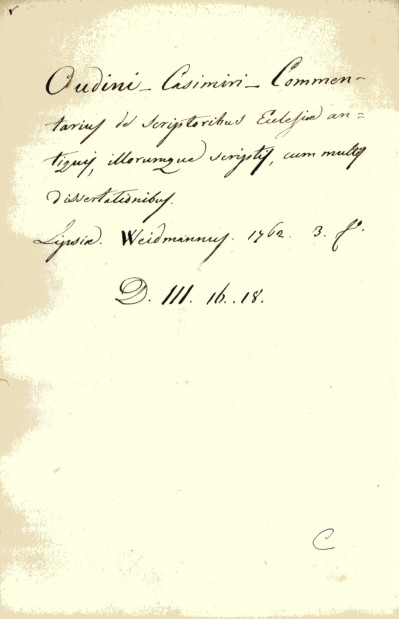 Oudini - Casimiri - Commen-
tarius de scriptoribus Eclesiæ an=
tiquis, illorumque scriptis, cum multis
dissertationibus.
Lipsiæ. Weidmannus. 1762. 3. f°.
D. III. 16..18.
C